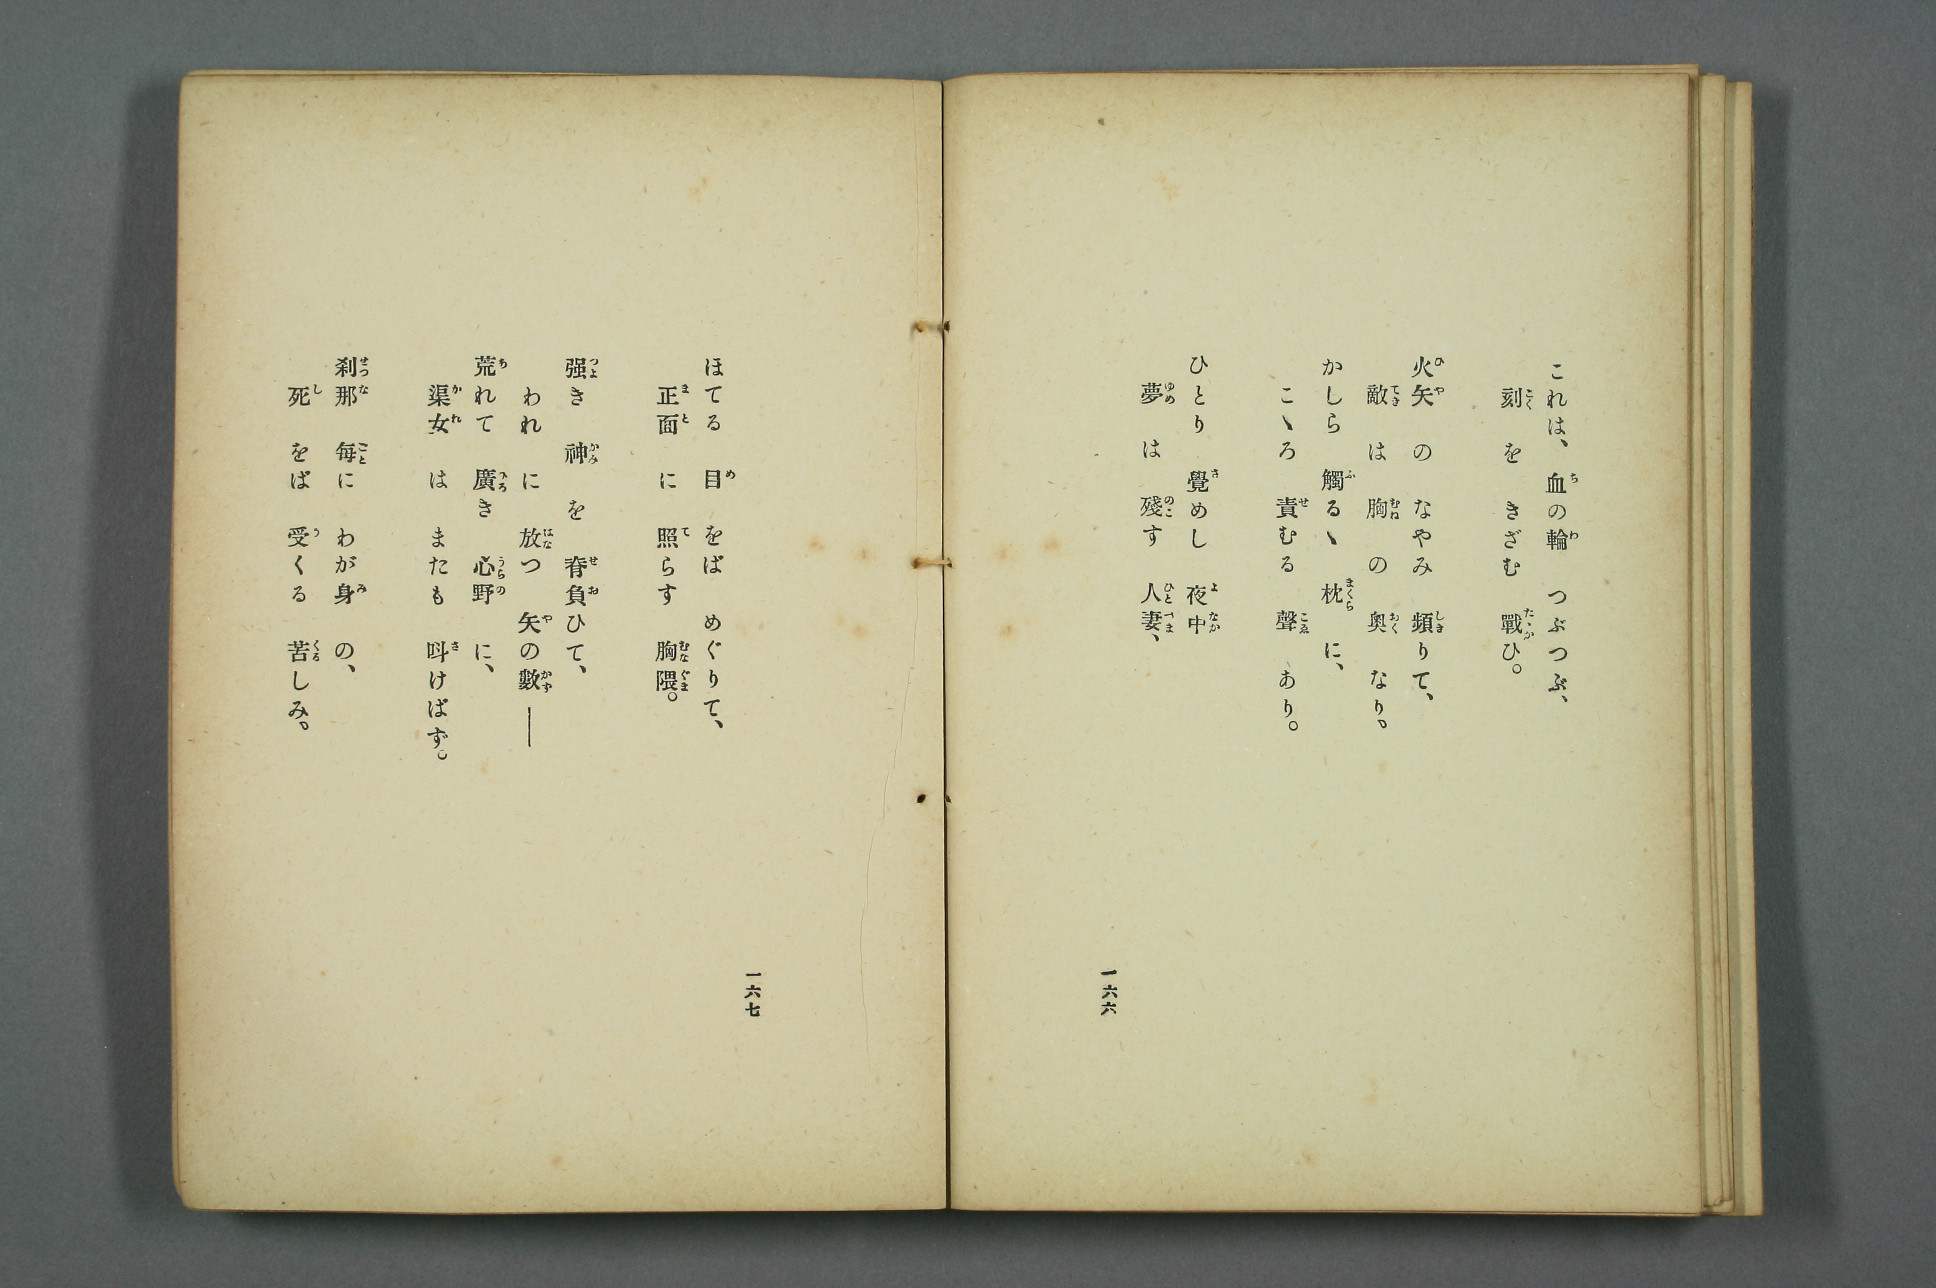 これは、血の輪つぶつぶ、
刻をきざむ戰ひ。
火矢のなやみ頻りて、
敵は胸の奧なり。
かしら觸るゝ枕に、
こゝろ責むる聲あり。
ひとり覺めし夜中
夢は殘す人妻、
一六六
ほてる目をばめぐりて、
正面に照らす胸隈。
强き神を脊負ひて、
われに放つ矢の數――
荒れて廣き心野に、
渠女はまたも呌けばず。
刹那毎にわが身の、
死をば受くる苦しみ。
一六七